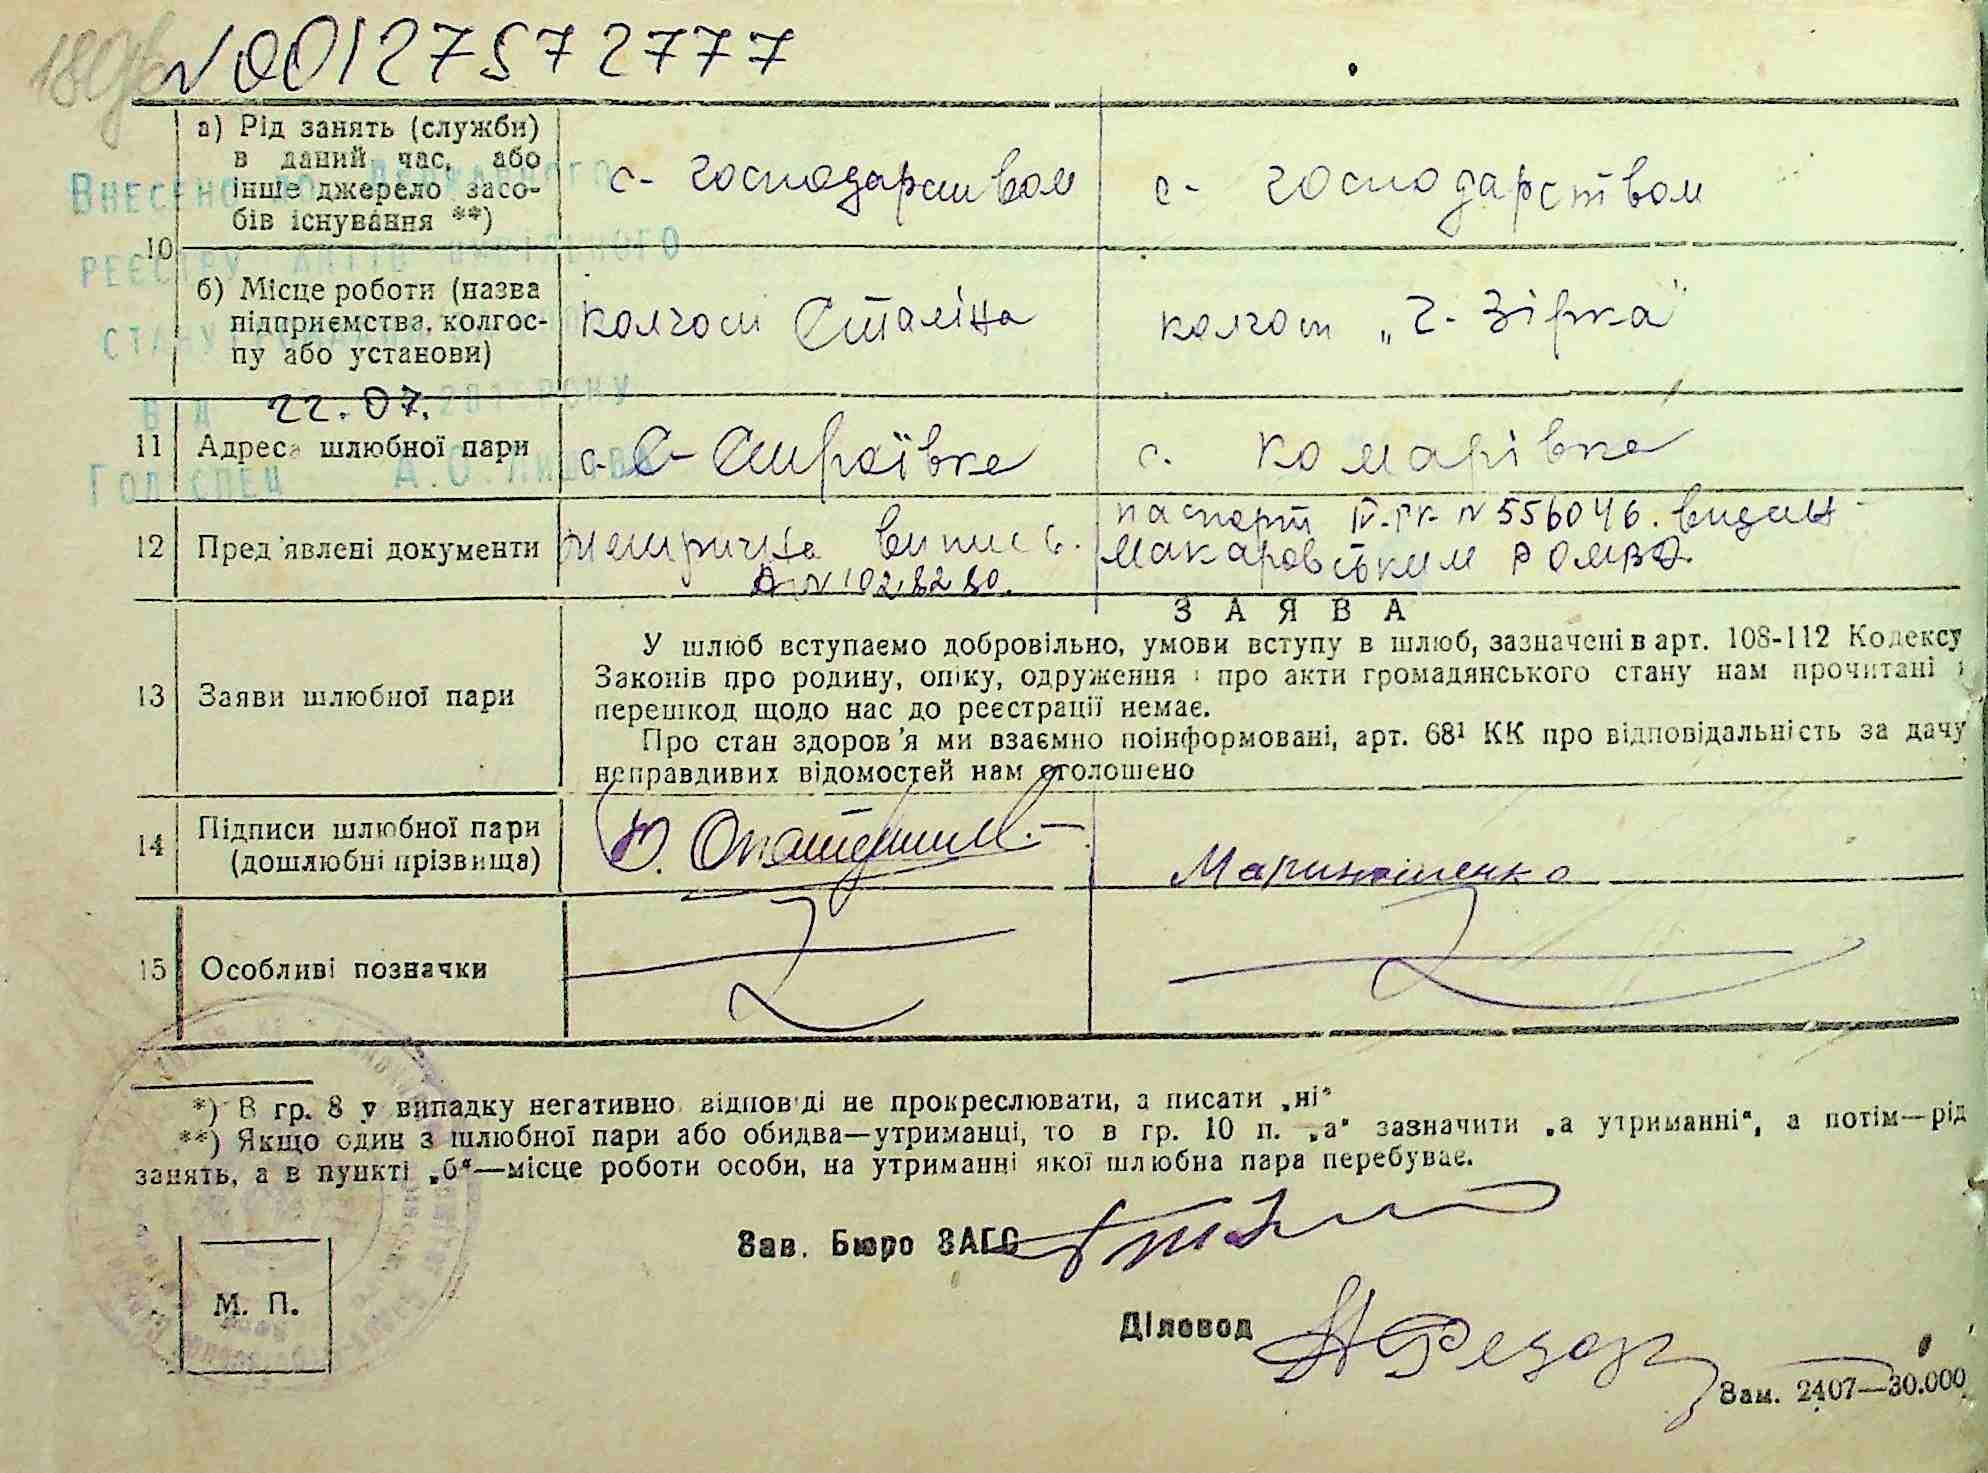 N 00127572777
а) Рід занять (служби) в даний час, або інше джерело засобів існування **)
с- господарством
с- господарством
10
б) Місце роботи (назва підприємства, колгоспу або установи)
колгосп Сталіна
колгосп „Ч- Зірка"
22.07.
11 Адреса шлюбної пари
с.
с. Комарівка
12 Пред'явлені документи
метрична випись.
N 1028280.
паспорт N 556046. видан
Макаровським РОМВД
13 Заяви шлюбної пари
ЗАЯВА
У шлюб вступаемо добровільно, умови вступу в шлюб, зазначені в арт. 108-112 Кодексу
Законів про родину, опіку, одруження і про акти громадянського стану нам прочитані і
перешкод щодо нас до реєстрації немає.
Про стан здоров'я ми взаємно поінформовані, арт. 68¹ КК про відповідальність за дачу
неправдивих відомостей нам оголошено
14 Підписи шлюбної пари (дошлюбні прізвища)
15 Особливі позначки
*) В гр. 8 у випадку негативно відповіді не прокреслювати, а писати „ні"
**) Якщо один з шлюбної пари або обидва—утриманці, то в гр. 10 п. „а" зазначити „а утриманні", а потім—рід
занять, а в пункті „б"—місце роботи особи, на утриманні якої шлюбна пара перебуває.
Зав. Бюро ЗАГС
М. П.
Діловод
Зам. 2407—30.000